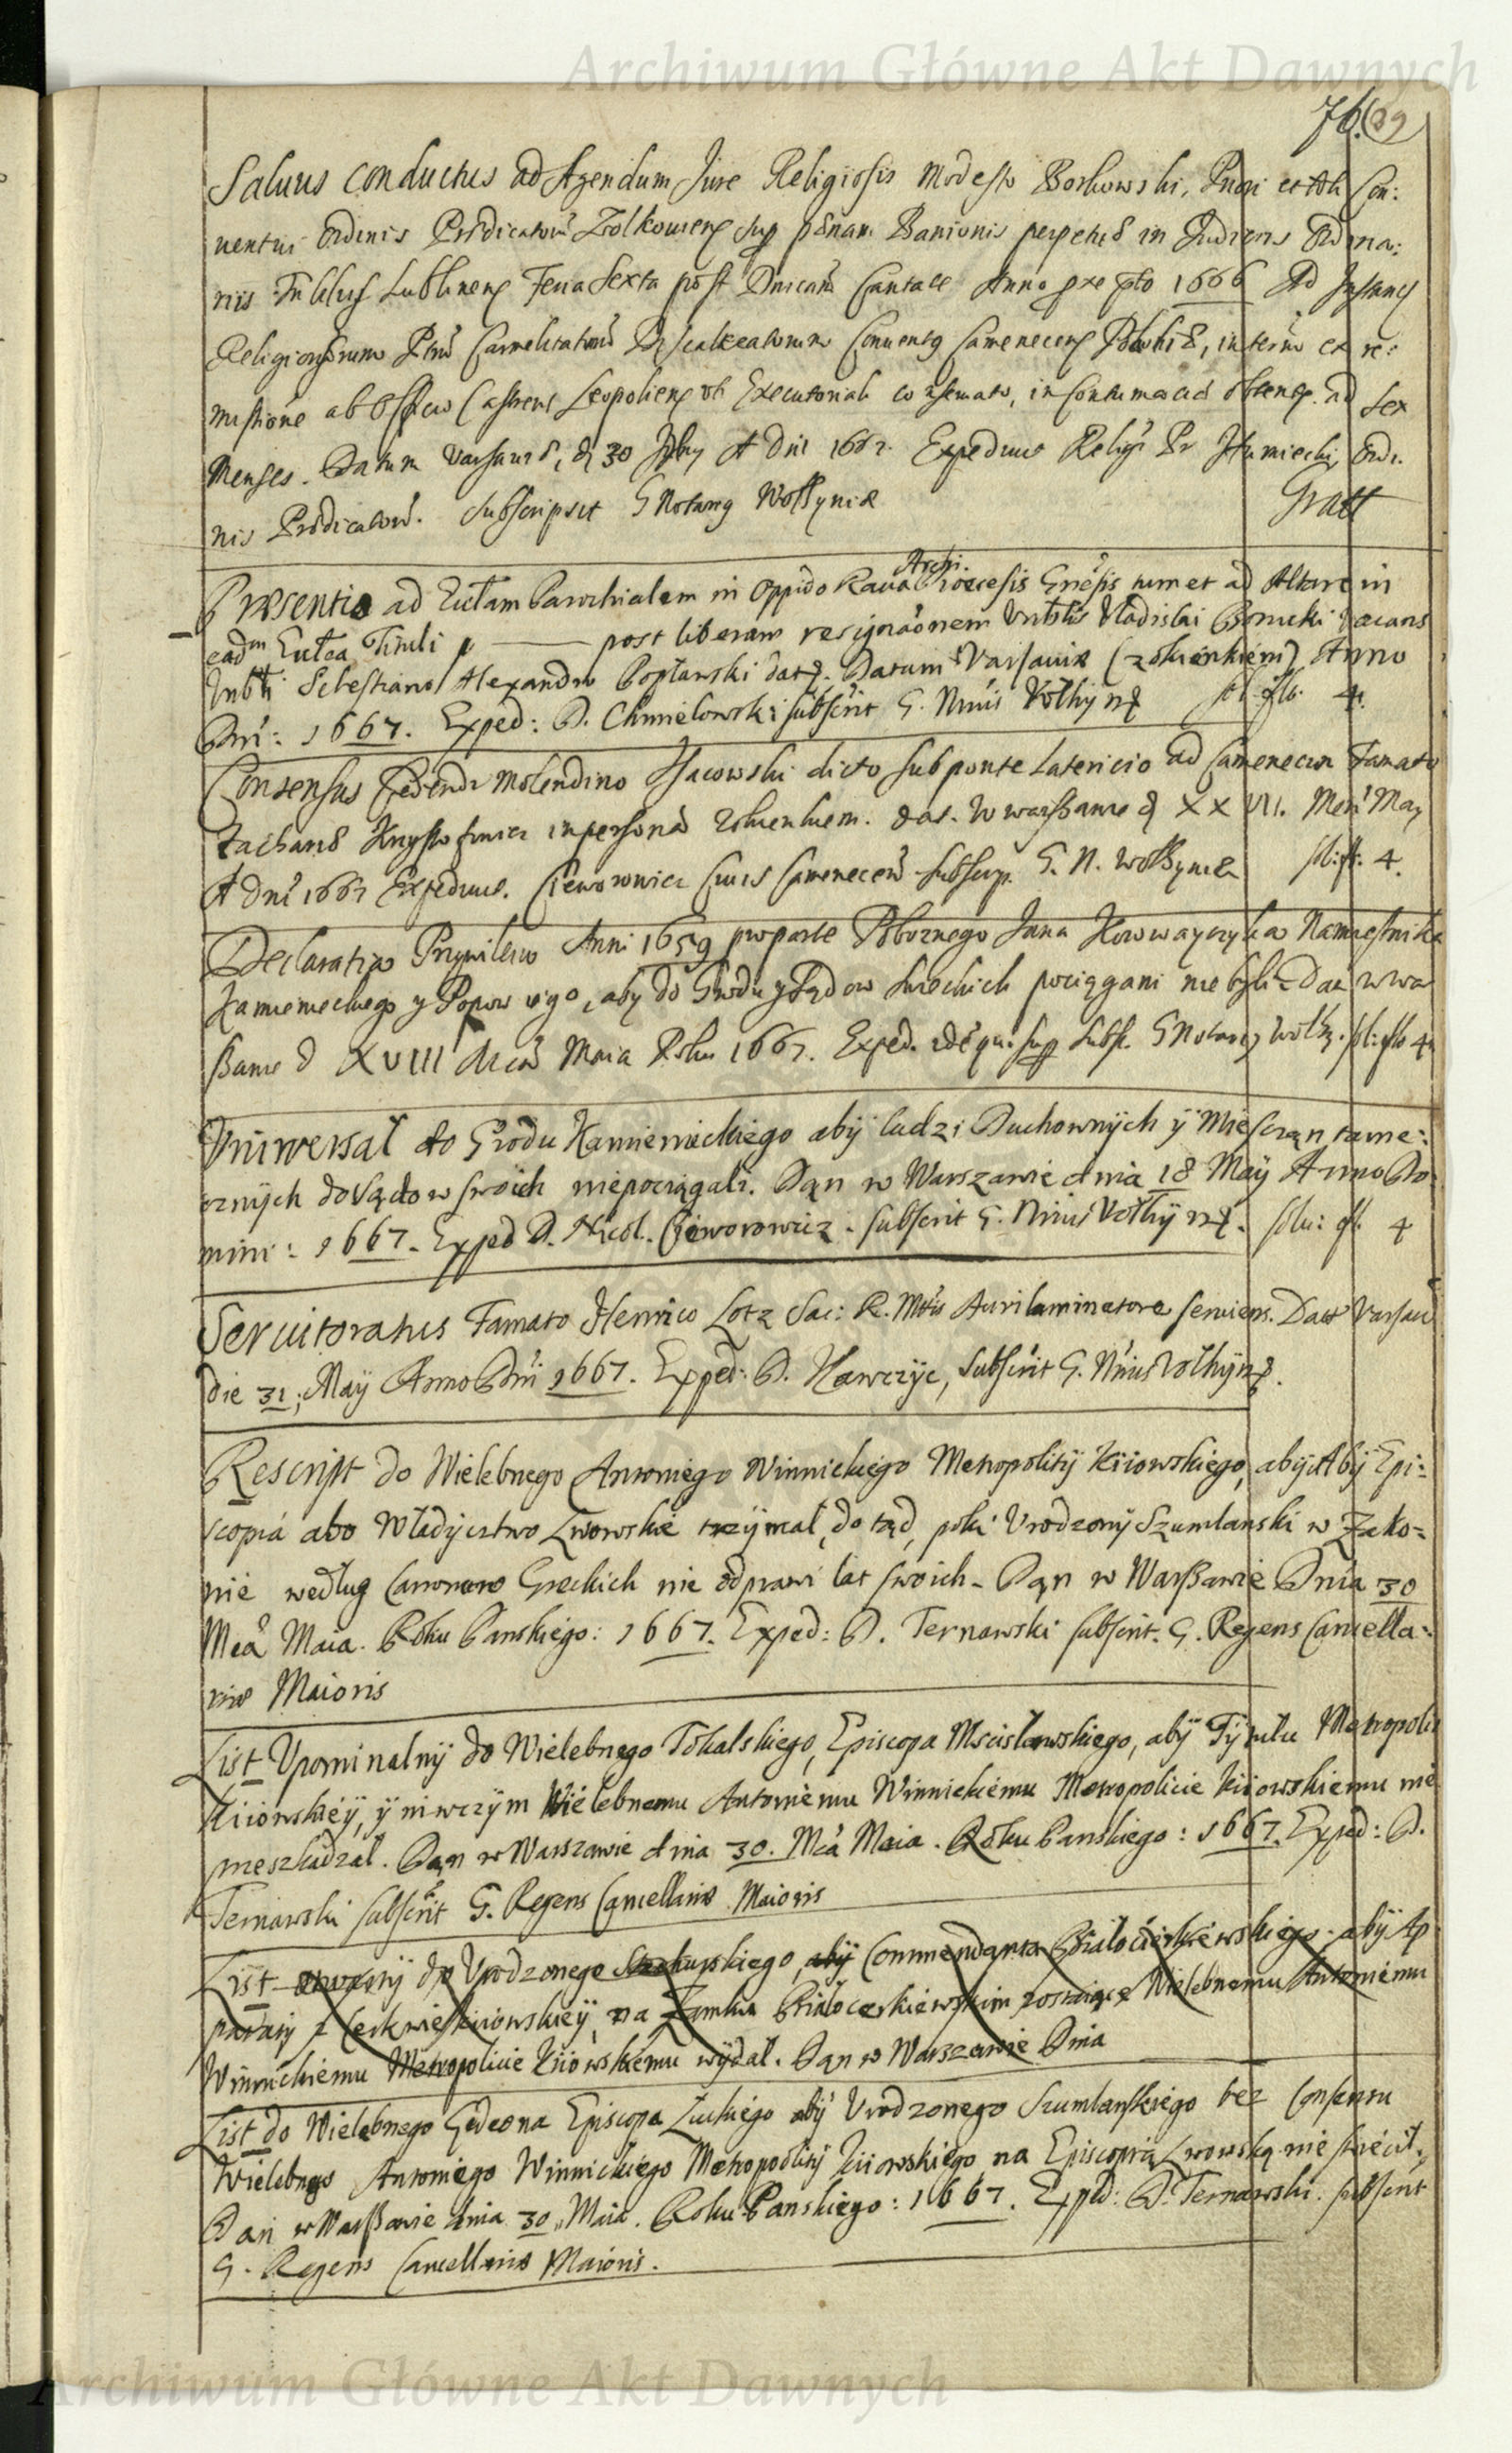 Archiwum Główne Akt Dawnych
76. 89
Saluus conductus ad Agendum Jure Religiosis Modesto Borkowski, Priori et toti Con:
uentui Ordinis Prædicatorũ Zolkowien sup pœnam Banionis perpetuæ in Judicijs Ordina:
rijs Tribluss Lublinen Feria Sexta post Dnicam Cantate Anno pxe pto 1666 Ad Instanc
Religiosorum Ptrũ Carmelitarũ Discalceatorum Conuentq Camenecen Podoliæ, in termõ ex re:
missione ab Officio Castrens Leopolien vti Executoriali conseruato, in Contumaciã obtenta. ad Sex
Menses. Datum Varsauiæ, d 30 A Dni 1667. Expediuit Religs Pr Humiecki, Ordi.
nis Prædicatorũ. Subscripsit G Notarq Wołhyniæ Gratt
Præsentia ad Ecclam Parochialem in Oppido Raua Archi Dioecesis Gnesis tum et ad Altare in
eadm Eccla Tituli p —— post liberam resignaõnem Vrblis Vladislai Borucki vacans
Vnbli Sebestiano Alexandro Popławski datq. Datum Varsauiæ (z okienkiem) Anno
Dni: 1667. Exped: D. Chmielowski subscrit G. Nrius Vołhynq sol: flo. 4.
Consensus Cedendi Molendino Isacowski dicto sub ponte Latericio ad Camenecum Famato
Zachariæ Krysztofowicz in personã z okienkiem. dat. w warszawie d XXVII. Mens May
A dni 1667 Expediuit. Cieworowicz Ciuis Camenecen subscrip. G. N. Wołhyniæ sol: fl. 4.
Declaratio Przywileiu Anni 1659 pro parte Poboznego Jana Namiestnika
Kamienieckiego y Popow iego, aby do Grodu y Sądow Swieckich pociągani nie byli. Dat w wa
szawie d XVIII Mcã Maia Roku 1667. Exped. idẽ qui sup subsc. G Notarq Wołhy. sol: flo 4.
Vniwersał do Grodu Kamienieckiego aby ludzi Duchownych y Miesczan tame:
cznych do Sądow swoich niepociągali. Dan w Warszawie dnia 18 May Anno Do:
mini: 1667. Exped D. Nicol. Cieworowicz. subscrit G. Nrius Vołhynq. solu: fl. 4
Seruitoratus Famato Henrico Lotz Sac: R. Mtis Auriluminatore seruiens. Dat Varsauiæ
die 31, May Anno Dni 1667. Exped: D. Hawczyc, subscrit G. Nrius Volhynq.
Rescript do Wielebnego Antoniego Winnickiego Metropolity Kiiowskiego, abij Epi:
scopia abo Władyctwo Lwowskie trzymał, do tąd, poki Vrodzony Szumlanski w Zako:
nie według Canonow Greckich nie odprawi lat swoich. Dan w Warszawie Dnia 30
Mcã Maia. Roku Panskiego: 1667. Exped: D. Ternawski subscrit. G. Regens Cancella:
riæ Maioris
List Vpominalny do Wielebnego Tokalskiego, Episcopa Mscisławskiego, aby Tytułu Metropolii
Kiiowskiey, y niwczym Wielebnemu Antoniemu Winnickiemu Metropolicie Kiiowskiemu nie
przeszkadzał. Dan w Warszawie dnia 30. Mcã Maia. Roku Panskiego: 1667. Exped: D.
Ternawski subscrit G. Regens Cancellariæ Maioris
List do Vrodzonego aby Commendanta Białocerkiewskiego. aby Ap
paraty z Cerkwie Kiiowskiey, na Zamku Białocerkiewskim zostaiące Wielebnemu Antoniemu
Winnickiemu Metropolicie Kiiowskiemu wydał. Dan w Warszawie Dnia
List do Wielebnego Gedeona Episcopa Łuckiego aby Vrodzonego Szumlanskiego bez Consensu
Wielebnego Antoniego Winnickiego Metropolity Kiiowskiego na Episcopią Lwowską nie swięcił.
Dan w Warszawie dnia 30, Maia. Roku Panskiego: 1667. Exped: D. Ternawski. subscrit
G. Regens Cancellariæ Maioris.
Archiwum Główne Akt Dawnych